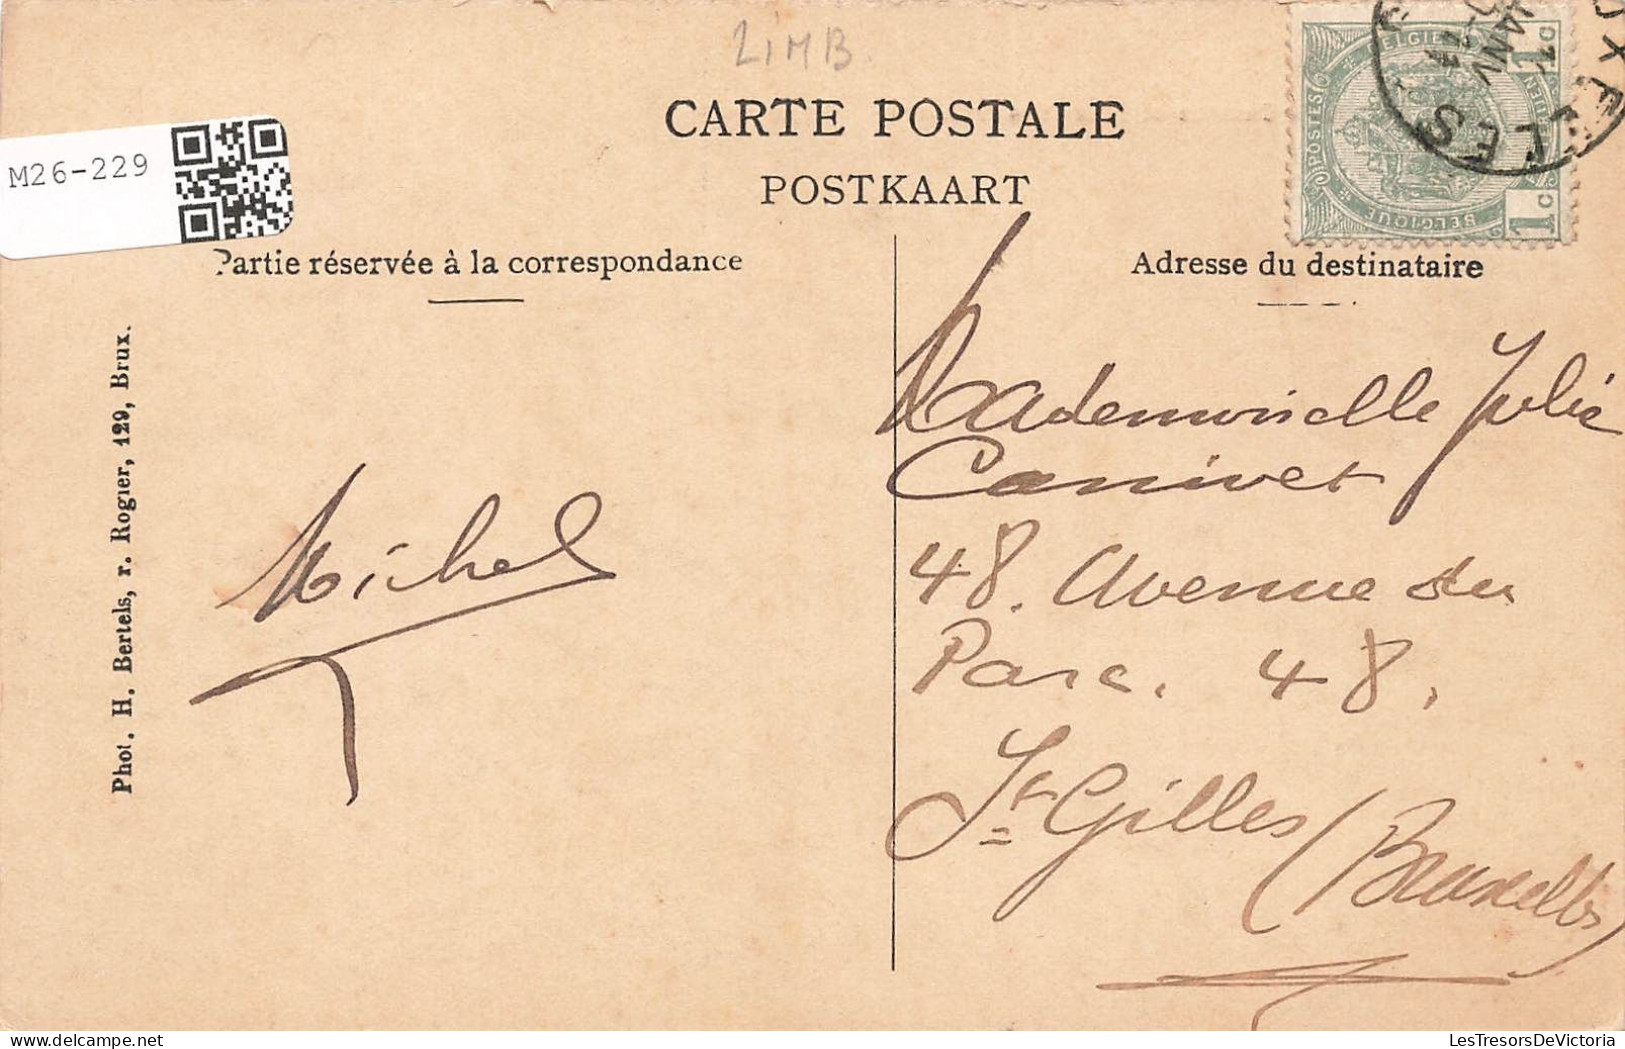 LIMB.
CARTE POSTALE
POSTKAART
M26-229
Partie réservée à la correspondance
Adresse du destinataire
Phot. H. Bertels, r. Rogier, 129, Brux.
Michel
Mademoiselle Julie
Canivet
48. Avenue du
Parc. 48.
St Gilles (Bruxelles)
POSTES
BELGIQUE
BELGIE
1c
1c
JANV
11
LesTresorsDeVictoria